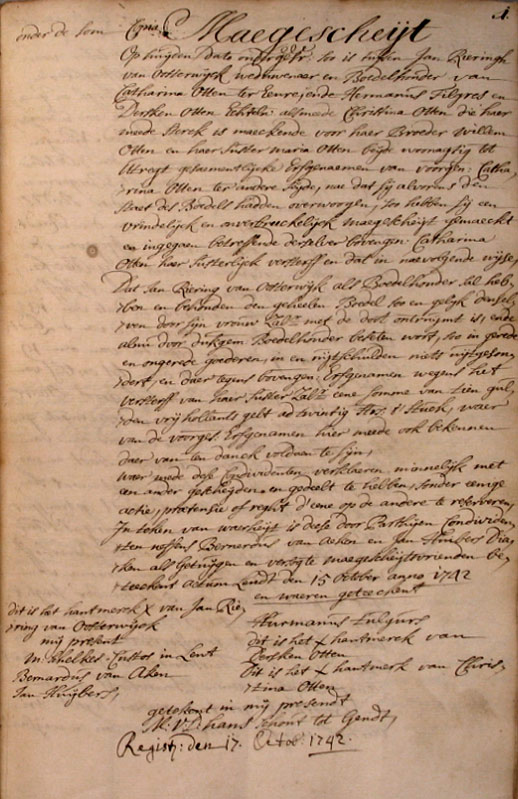 4.
onder de som
Maegescheijt
Op huijden dato ondergetr: soo is tussen Jan Rieringh
van Oosterwijck weduwenaer en Boedelhouder van
Catharina Otten ter Eenre, ende Hermanus Filgres en
Dersken Otten Echtel: alsmede Christina Otten die haer
meede sterck is maeckende voor haer Broeder Willem
Otten en haer Suster Maria Otten beijde woonagtig tot
Utregt gesamentlijcke Erfgenaemen van voorgen: Catha,
rina Otten ter andere sijde, nae dat sij alvorens den
staet des Boedels hadden overwoogen, soo hebben sij een
vrindelijck en onverbreeckelijck maegescheijt gemaeckt
en ingegaen betreffende derselver bovengen: Catharina
Otten haer susterlijck versterff en dat in naevolgende wijse,
Dat Jan Riering van Oosterwijk als Boedelhouder sal heb,
ben en behouden den geheelen Boedel soo en gelijk densel,
ven door sijn vrouw Zalr met de doot ontruijmt is, ende
alnu door den Boedelhouder beseten wort, soo in gerede
en ongerede goederen, in en uijtschulden niets uijtgeson,
dert, en daer tegens bovengen: Erfgenamen wegens het
versterff van haer Suster Zalr eene somme van tien gul,
den vrij hollants gelt ad twintig strs. t' stuck, waer
van de voorges. Erfgenamen hier meede ook bekennen
daer van ten danck voldaen te sijn,
Waer mede dese Condividenten verklaeren minnelijk met
een ander gescheijden en gedeelt te hebben, sonder eenige
actie, praetensie of reght d'eene op de andere te reserveren,
In teken van waerheijt is deese door Parthijen Condividen,
ten neffens Bernardus van Aeken en Jan Huibers
als Getuijgen en versogte maegescheijtsvrienden be,
teeckent Actum Lendt den 15 October anno 1742
en waeren geteeckent
dit is het hantmerck X van Jan Rie,
ring van Oosterwijck
mij present
M: Schelkes Custos in Lent
Bernardus van Aken
Jan Huijbers,
Hurmanus Fulgurs
dit is het X hantmerck van
Dersken Otten
Dit is het X hantmerk van Chris,
tina Otten
getekent in mij presendt
tot Gendt,
Registr: den 17. Octob: 1742.